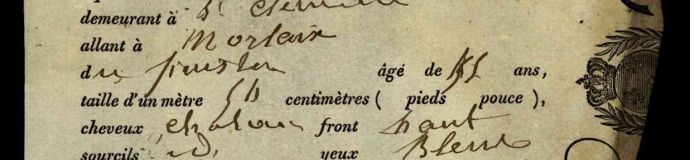 demeurant à St Clément
allant à Morlaix
du finister âgé de 55 ans,
taille d'un mètre centimètres ( pieds pouce ),
cheveux chatain front haut
sourcils id yeux Bleus